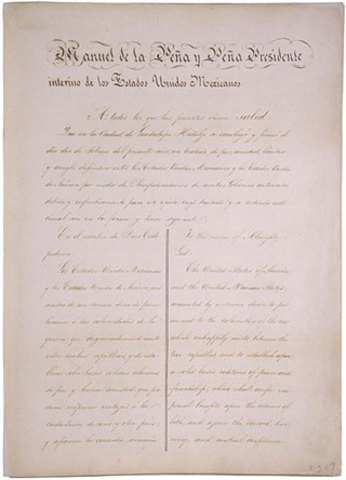 Manuel de la Peña y Peña Presidente
interino de los Estados Unidos Mexicanos
A todos los que las presentes vieren salud.
Que en la Ciudad de Guadalupe Hidalgo se concluyó y firmó el
día dos de febrero del presente año, un tratado de paz, amistad, límites
y arreglo definitivo entre los Estados Unidos Mexicanos y los Estados Unidos
de América por medio de Plenipotenciarios de ambos Gobiernos autorizados
debida y respectivamente para este efecto, cuyo tratado y su artículo adi-
cional son en la forma y tenor siguiente.
En el nombre de Dios Todo
poderoso:
Los Estados Unidos Mexicanos
y los Estados Unidos de América, ani-
mados de un sincero deseo de poner
término a las calamidades de la
guerra que desgraciadamente existe
entre ambas repúblicas, y de esta-
blecer sobre bases sólidas relaciones
de paz y buena amistad, que pro-
curen recíprocas ventajas a los
ciudadanos de uno y otro país,
y afiancen la concordia, armonía
In the name of Almighty
God:
The United States of America
and the United Mexican States,
animated by a sincere desire to put
an end to the calamities of the war
which unhappily exists between the
two republics, and to establish upon
a solid basis relations of peace and
friendship, which shall confer reci-
procal benefits upon the citizens of
both, and assure the concord, har-
mony, and mutual confidence